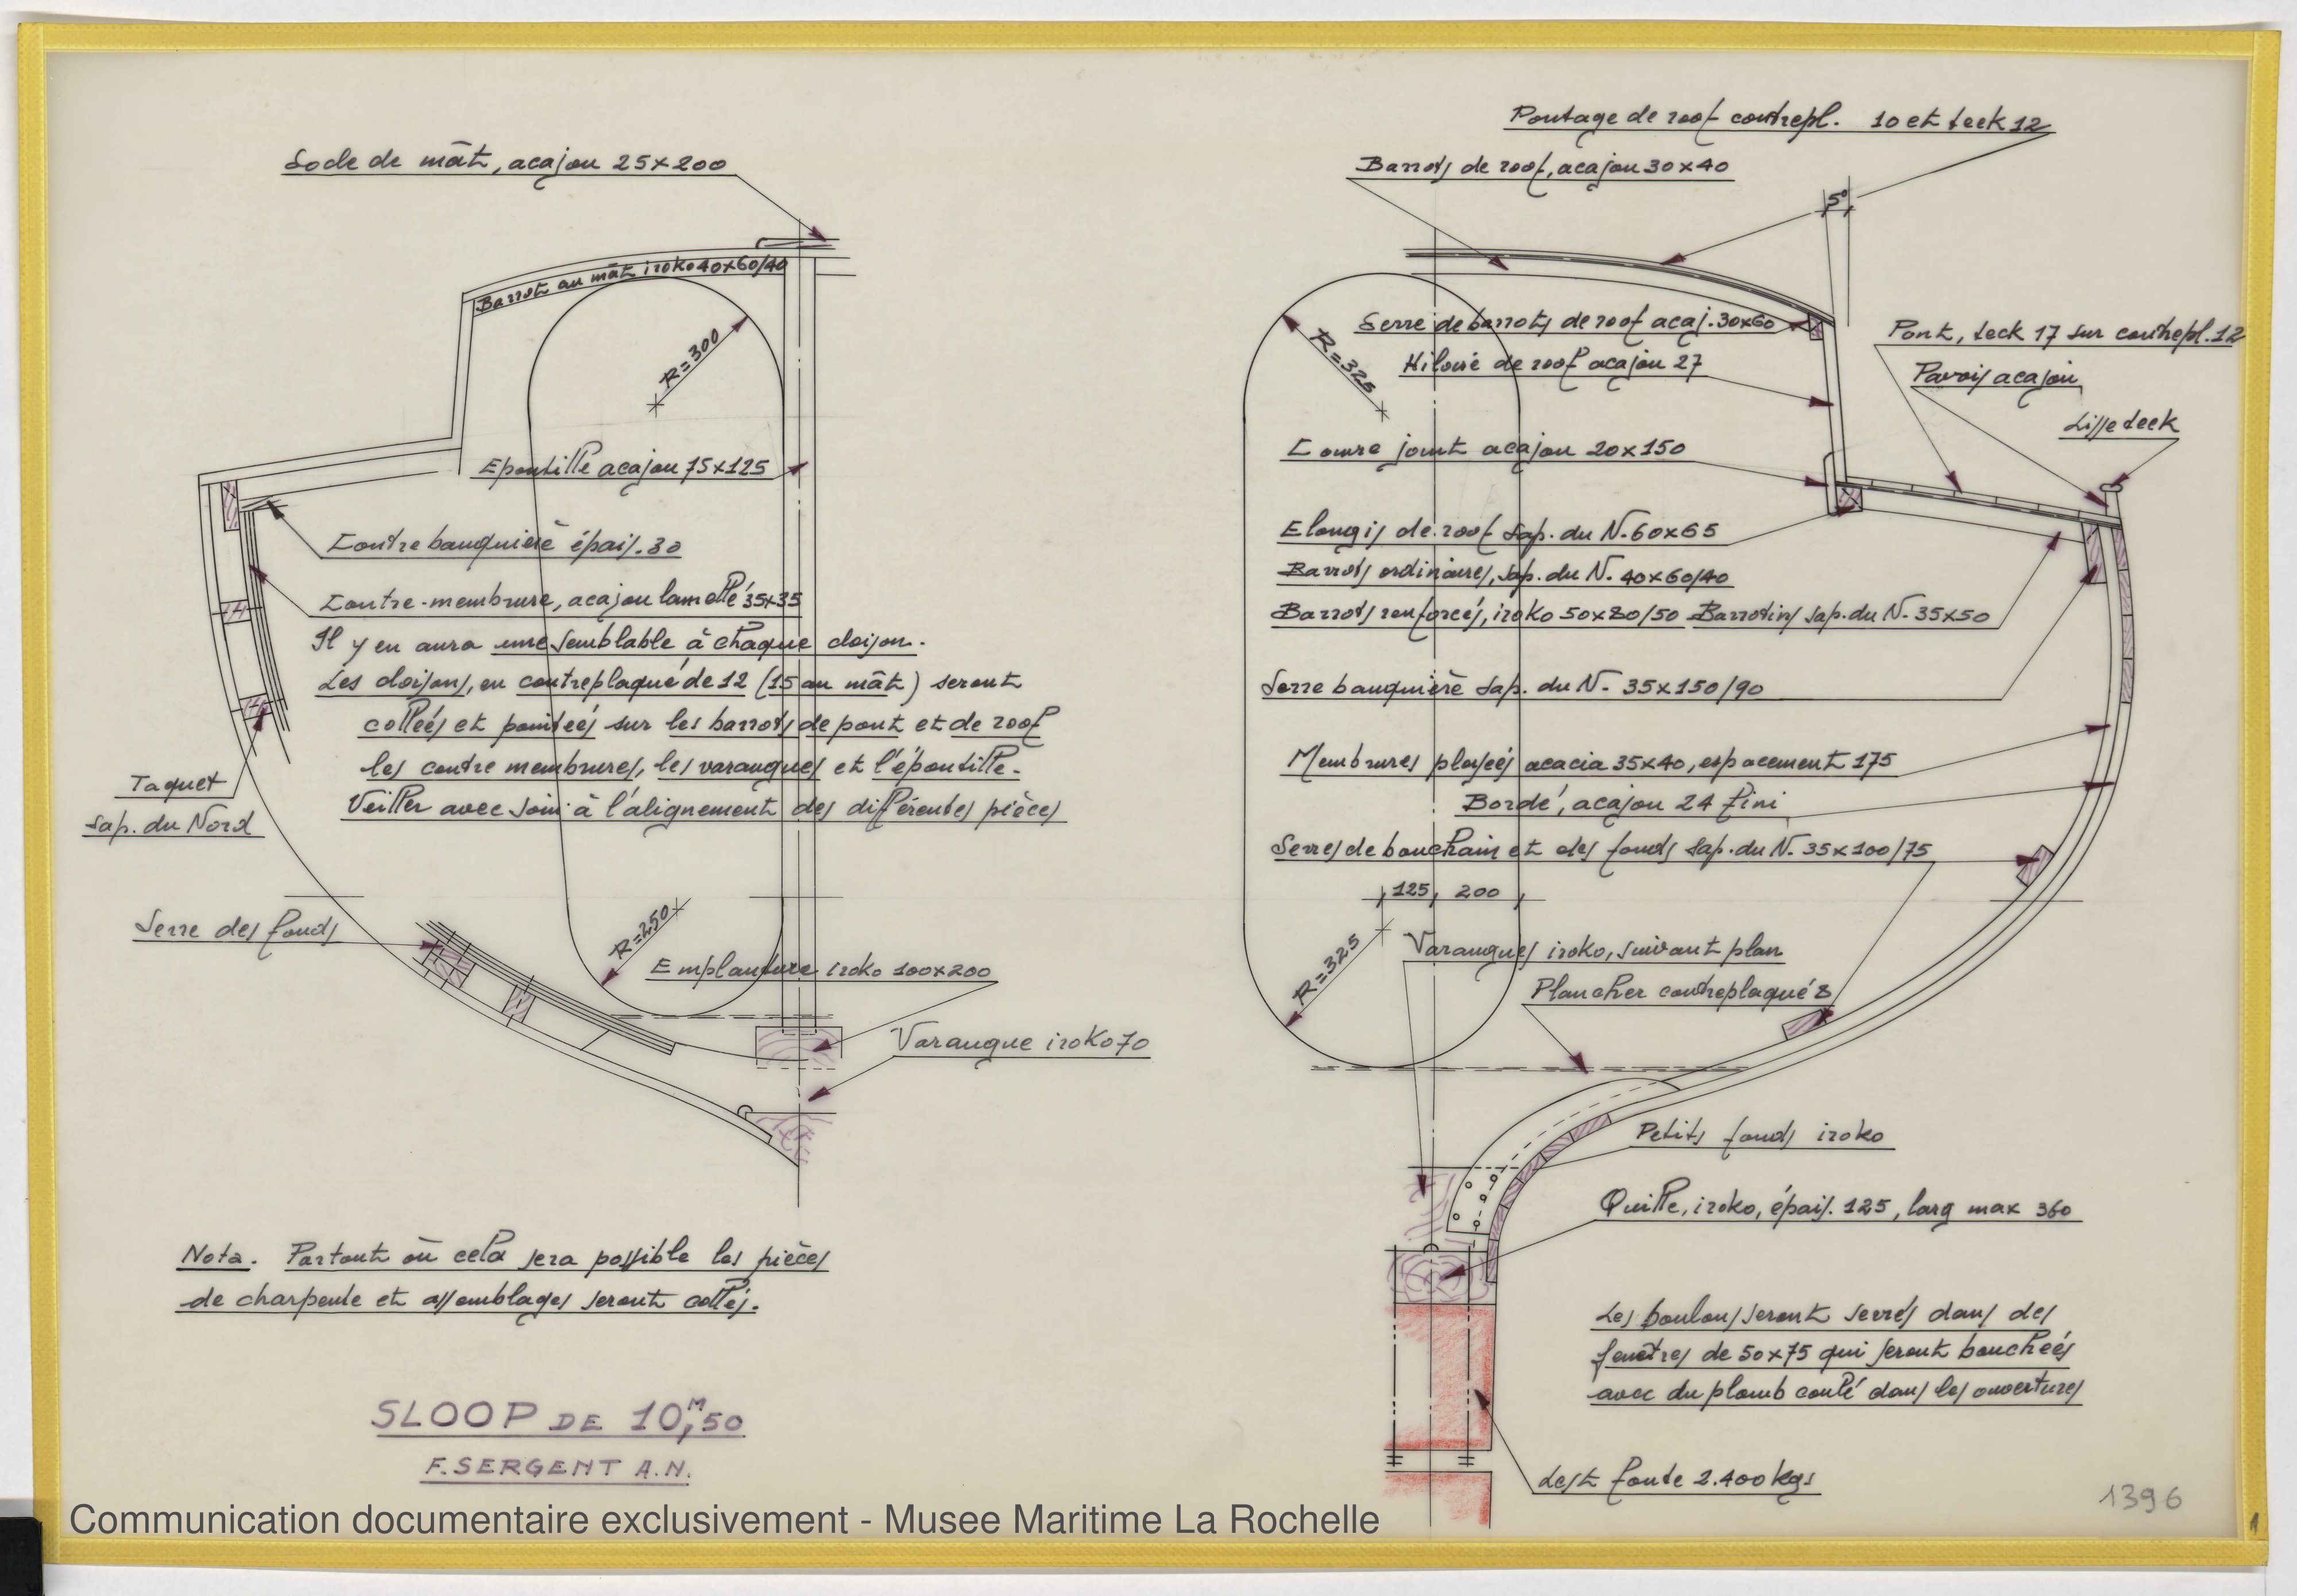 Socle de mât, acajou 25x200
Barrot au mât iroko 40x60/40
R=300
Epontille acajou 75x125
Contre banquière épais. 30
Contre-membrure, acajou lamellé 35x35
Il y en aura une semblable à chaque cloison.
Les cloisons, en contreplaqué de 12 (15 au mât) seront
collées et pointées sur les barrots de pont et de roof
les contre membrures, les varangues et l'épontille.
Veiller avec soin à l'alignement des différentes pièces
Taquet
sap. du Nord
Serre des fonds
R=250
Emplanture iroko 100x200
Varangue iroko 70
Nota. Partout où cela sera possible les pièces
de charpente et assemblages seront collés.
SLOOP DE 10,M50
F. SERGENT A.N.
Pontage de roof contrepl. 10 et teck 12
Barrots de roof, acajou 30x40
5°
Serre de barrots de roof acaj. 30x60
R=325
Hiloire de roof acajou 27
Pont, teck 17 sur contrepl. 12
Pavois acajou
Lisse teck
Couvre joint acajou 20x150
Elongis de roof sap. du N. 60x65
Barrots ordinaires, sap. du N. 40x60/40
Barrots renforcés, iroko 50x80/50 Barrotins sap. du N. 35x50
Serre banquière sap. du N. 35x150/90
Membrures ployées acacia 35x40, espacement 175
Bordé, acajou 24 fini
Serres de bouchain et des fonds sap. du N. 35x100/75
125 200
R=325
Varangues iroko, suivant plan
Plancher contreplaqué 8
Petits fonds iroko
Quille, iroko, épais. 125, larg max 360
Les boulons seront serrés dans des
fenêtres de 50x75 qui seront bouchées
avec du plomb coulé dans les ouvertures
Lest fonte 2.400 kgs
1396
1
Communication documentaire exclusivement - Musee Maritime La Rochelle